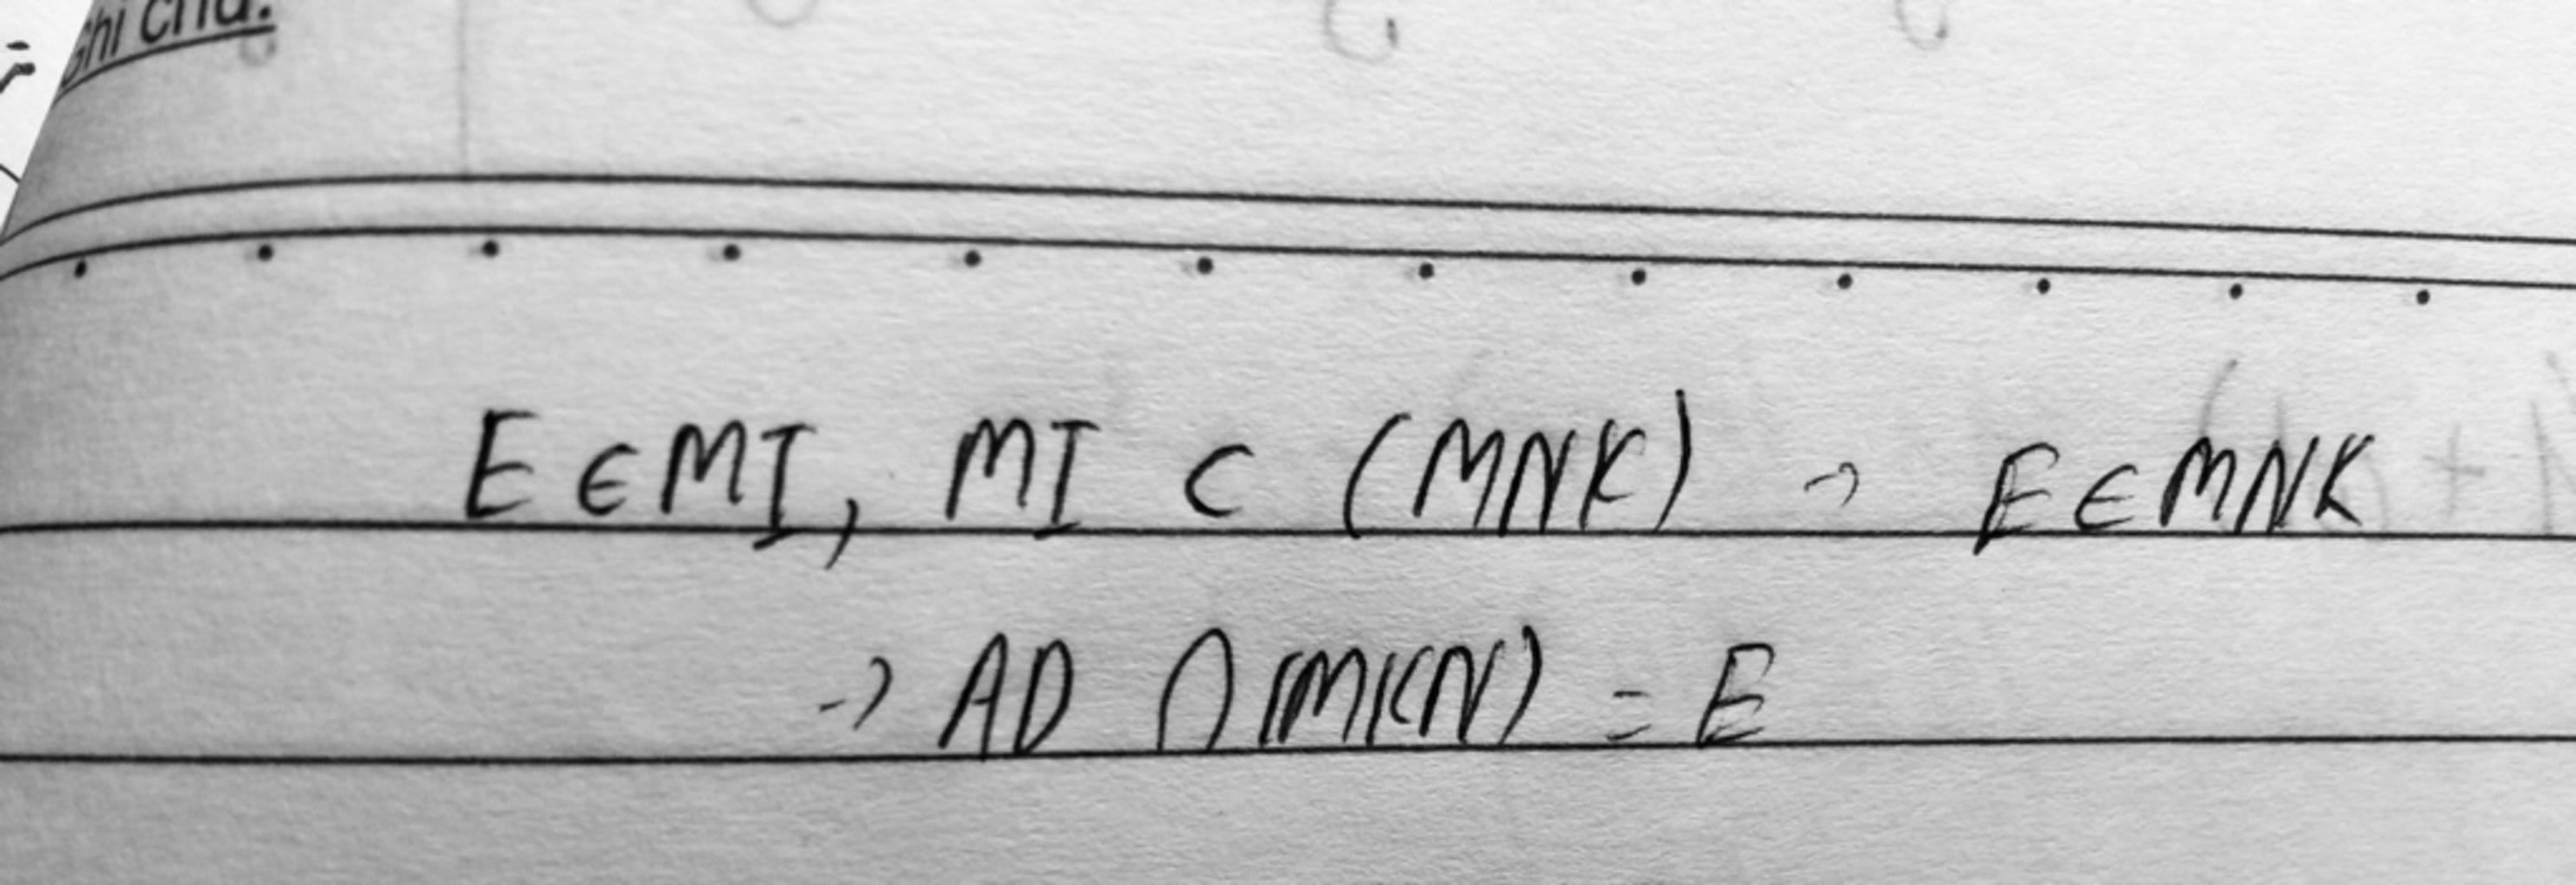 Ghi chú:
E ∈ MI, MI ⊂ (MNK) → E ∈ MNK
→ AD ∩ (MKN) = E